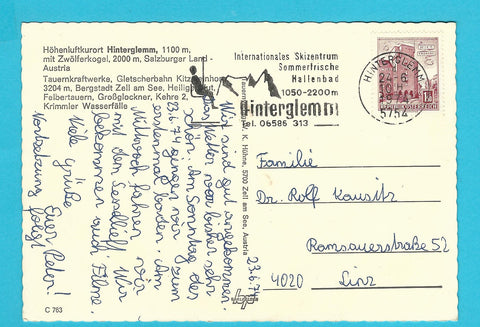 Höhenluftkurort Hinterglemm, 1100 m,
mit Zwölferkogel, 2000 m, Salzburger Land -
Austria
Tauernkraftwerke, Gletscherbahn Kitzsteinhorn
3204 m, Bergstadt Zell am See, Heiligenblut,
Felbertauern, Großglockner, Kehre 2,
Krimmler Wasserfälle
Internationales Skizentrum
Sommerfrische
Hallenbad
1050-2200m
Hinterglemm
Tel. 06586 313
HINTERGLEMM
24-6
5754
REPUBLIK ÖSTERREICH
K. Hühne, 5700 Zell am See, Austria
23.6.74
Wir sind gut angekommen.
Das Wetter war bisher sehr
schön. Am Sonntag dies
23.6.74 gingen wir zum
erstenmal baden. Am
Mittwoch fahren wir
mit dem Sessellift. Wir
bekommen auch Filme.
Viele Grüße
Euer Peter!
Fortsetzung folgt
Familie
Dr. Rolf Kausitz
Ramsauerstraße 52
4020 Linz
C 763